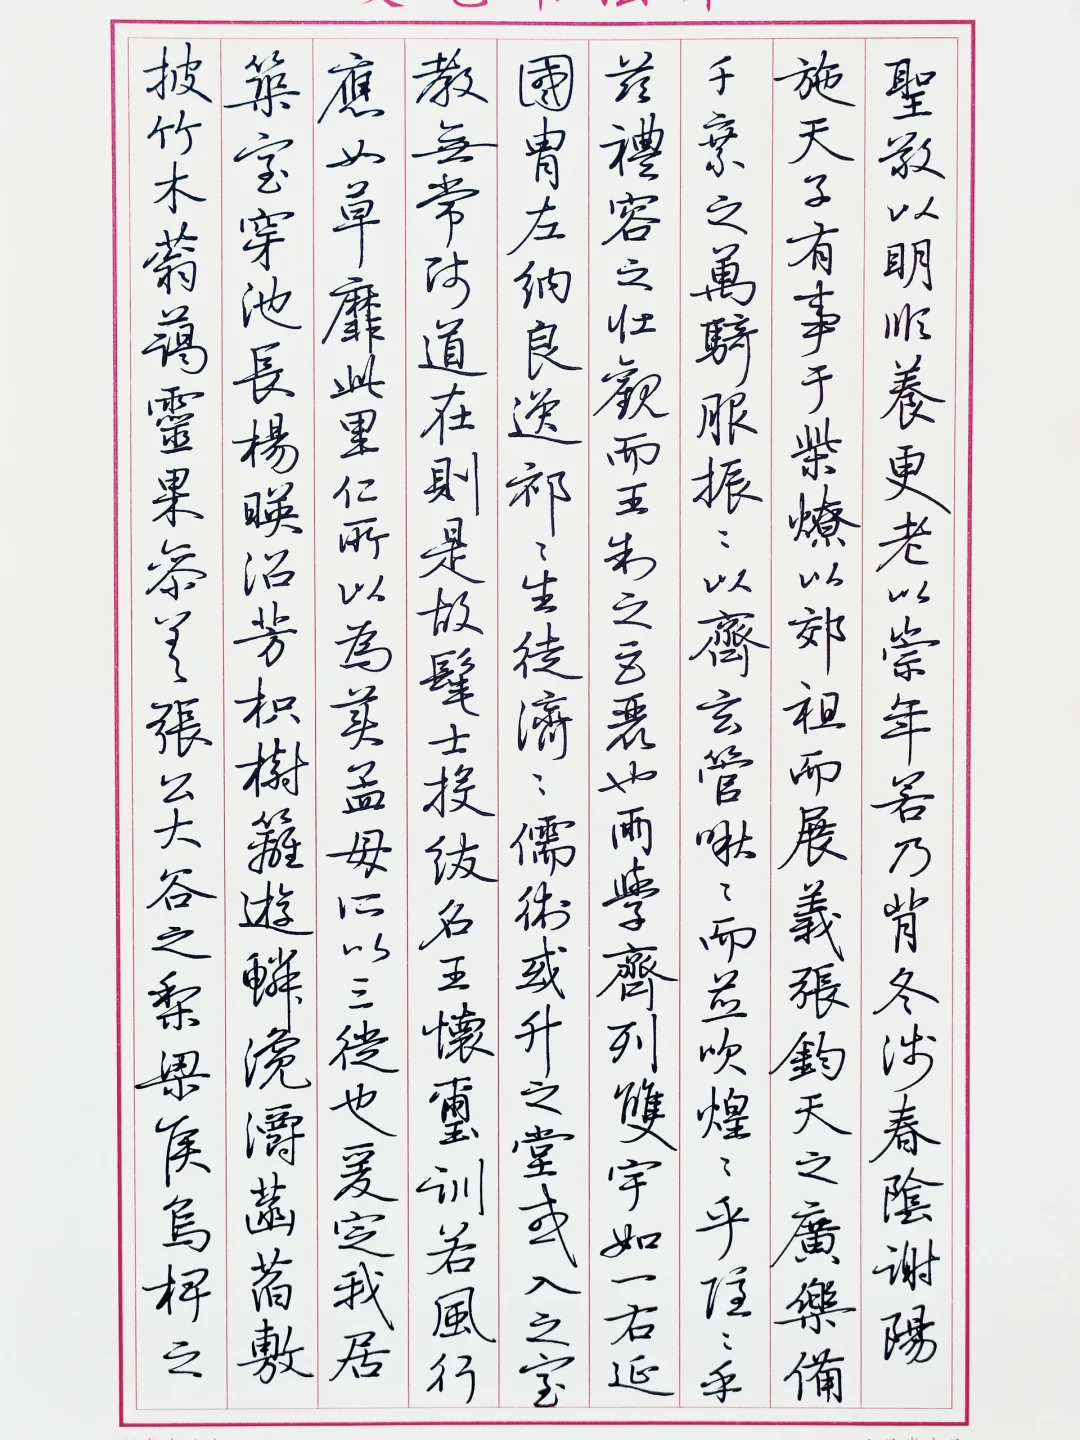 聖敬以明順養更老以崇年若乃背冬涉春陰謝陽
施天子有事于柴燎以郊祖而展義張鈞天之廣樂備
千乘之萬騎服振〻以齊玄管啾〻而並吹煌〻乎隱〻乎
茲禮容之壯觀而王制之巨麗也兩學齊列雙宇如一右延
國胄左納良逸祁〻生徒濟〻儒術或升之堂或入之室
教無常師道在則是故髦士投紱名王懷璽訓若風行
應如草靡此里仁所以為美孟母所以三徙也爰定我居
築室穿池長楊暎沼芳枳樹籬遊鱗瀺灂菡萏敷
披竹木蓊藹靈果參差張公大谷之梨梁侯烏椑之